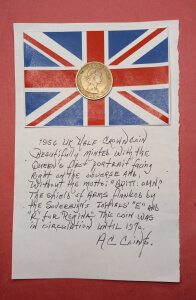 1956 UK HALF CROWN COIN
BEAUTIFULLY MINTED WITH THE
QUEEN'S FIRST PORTRAIT FACING
RIGHT ON THE OBVERSE AND
WITHOUT THE MOTTO: "BRITT: OMN."
THE SHIELD OF ARMS FLANKED BY
THE SOVEREIGN'S INITIALS "E" AND
"R" FOR REGINA. THE COIN WAS
IN CIRCULATION UNTIL 1970.
A C COINS.